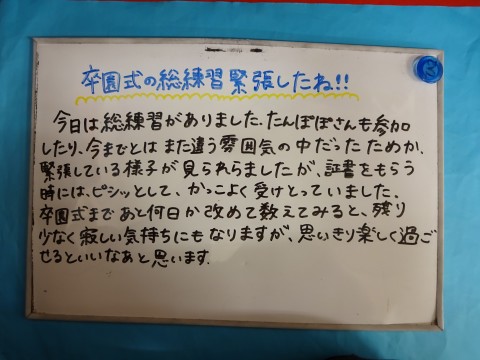 卒園式の総練習緊張したね!!
今日は総練習がありました。たんぽぽさんも参加
したり、今までとはまた違う雰囲気の中だったためか、
緊張している様子が見られましたが、証書をもらう
時には、ピシッとして、かっこよく受けとっていました。
卒園式まであと何日か改めて数えてみると、残り
少なく寂しい気持ちにもなりますが、思いきり楽しく過ご
せるといいなあと思います。